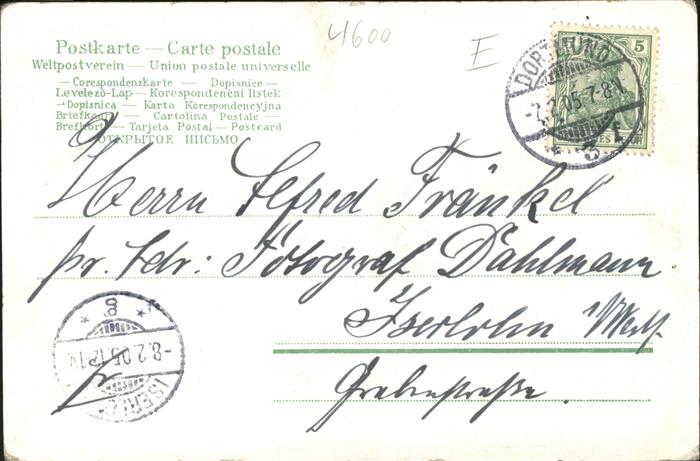 4600
E
Postkarte — Carte postale
Weltpostverein — Union postale universelle
— Corespondenzkarte — Dopisnice —
Levelező-Lap — Korespondenční lístek
— Dopisnica — Karta Korespondencyjna
Briefkaart — Cartolina Postale —
Brefkort — Tarjeta Postal — Postcard
ОТКРЫТОЕ ПИСЬМО
5
DORTMUND
7-8V.
3
Herrn Alfred Fränkel
pr. Adr: Fotograf Dahlmann
Iserlohn i/Westf.
Grabenstraße.
8
-8.2.05.12-1N.
ISERLO